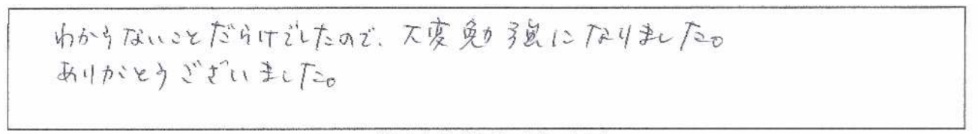 わからないことだらけでしたので、大変勉強になりました。
ありがとうございました。